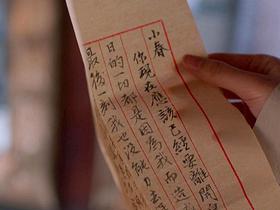 小春
你現在應該已經要離開
日的一切都是因為我而造
最後一刻我也沒能力去